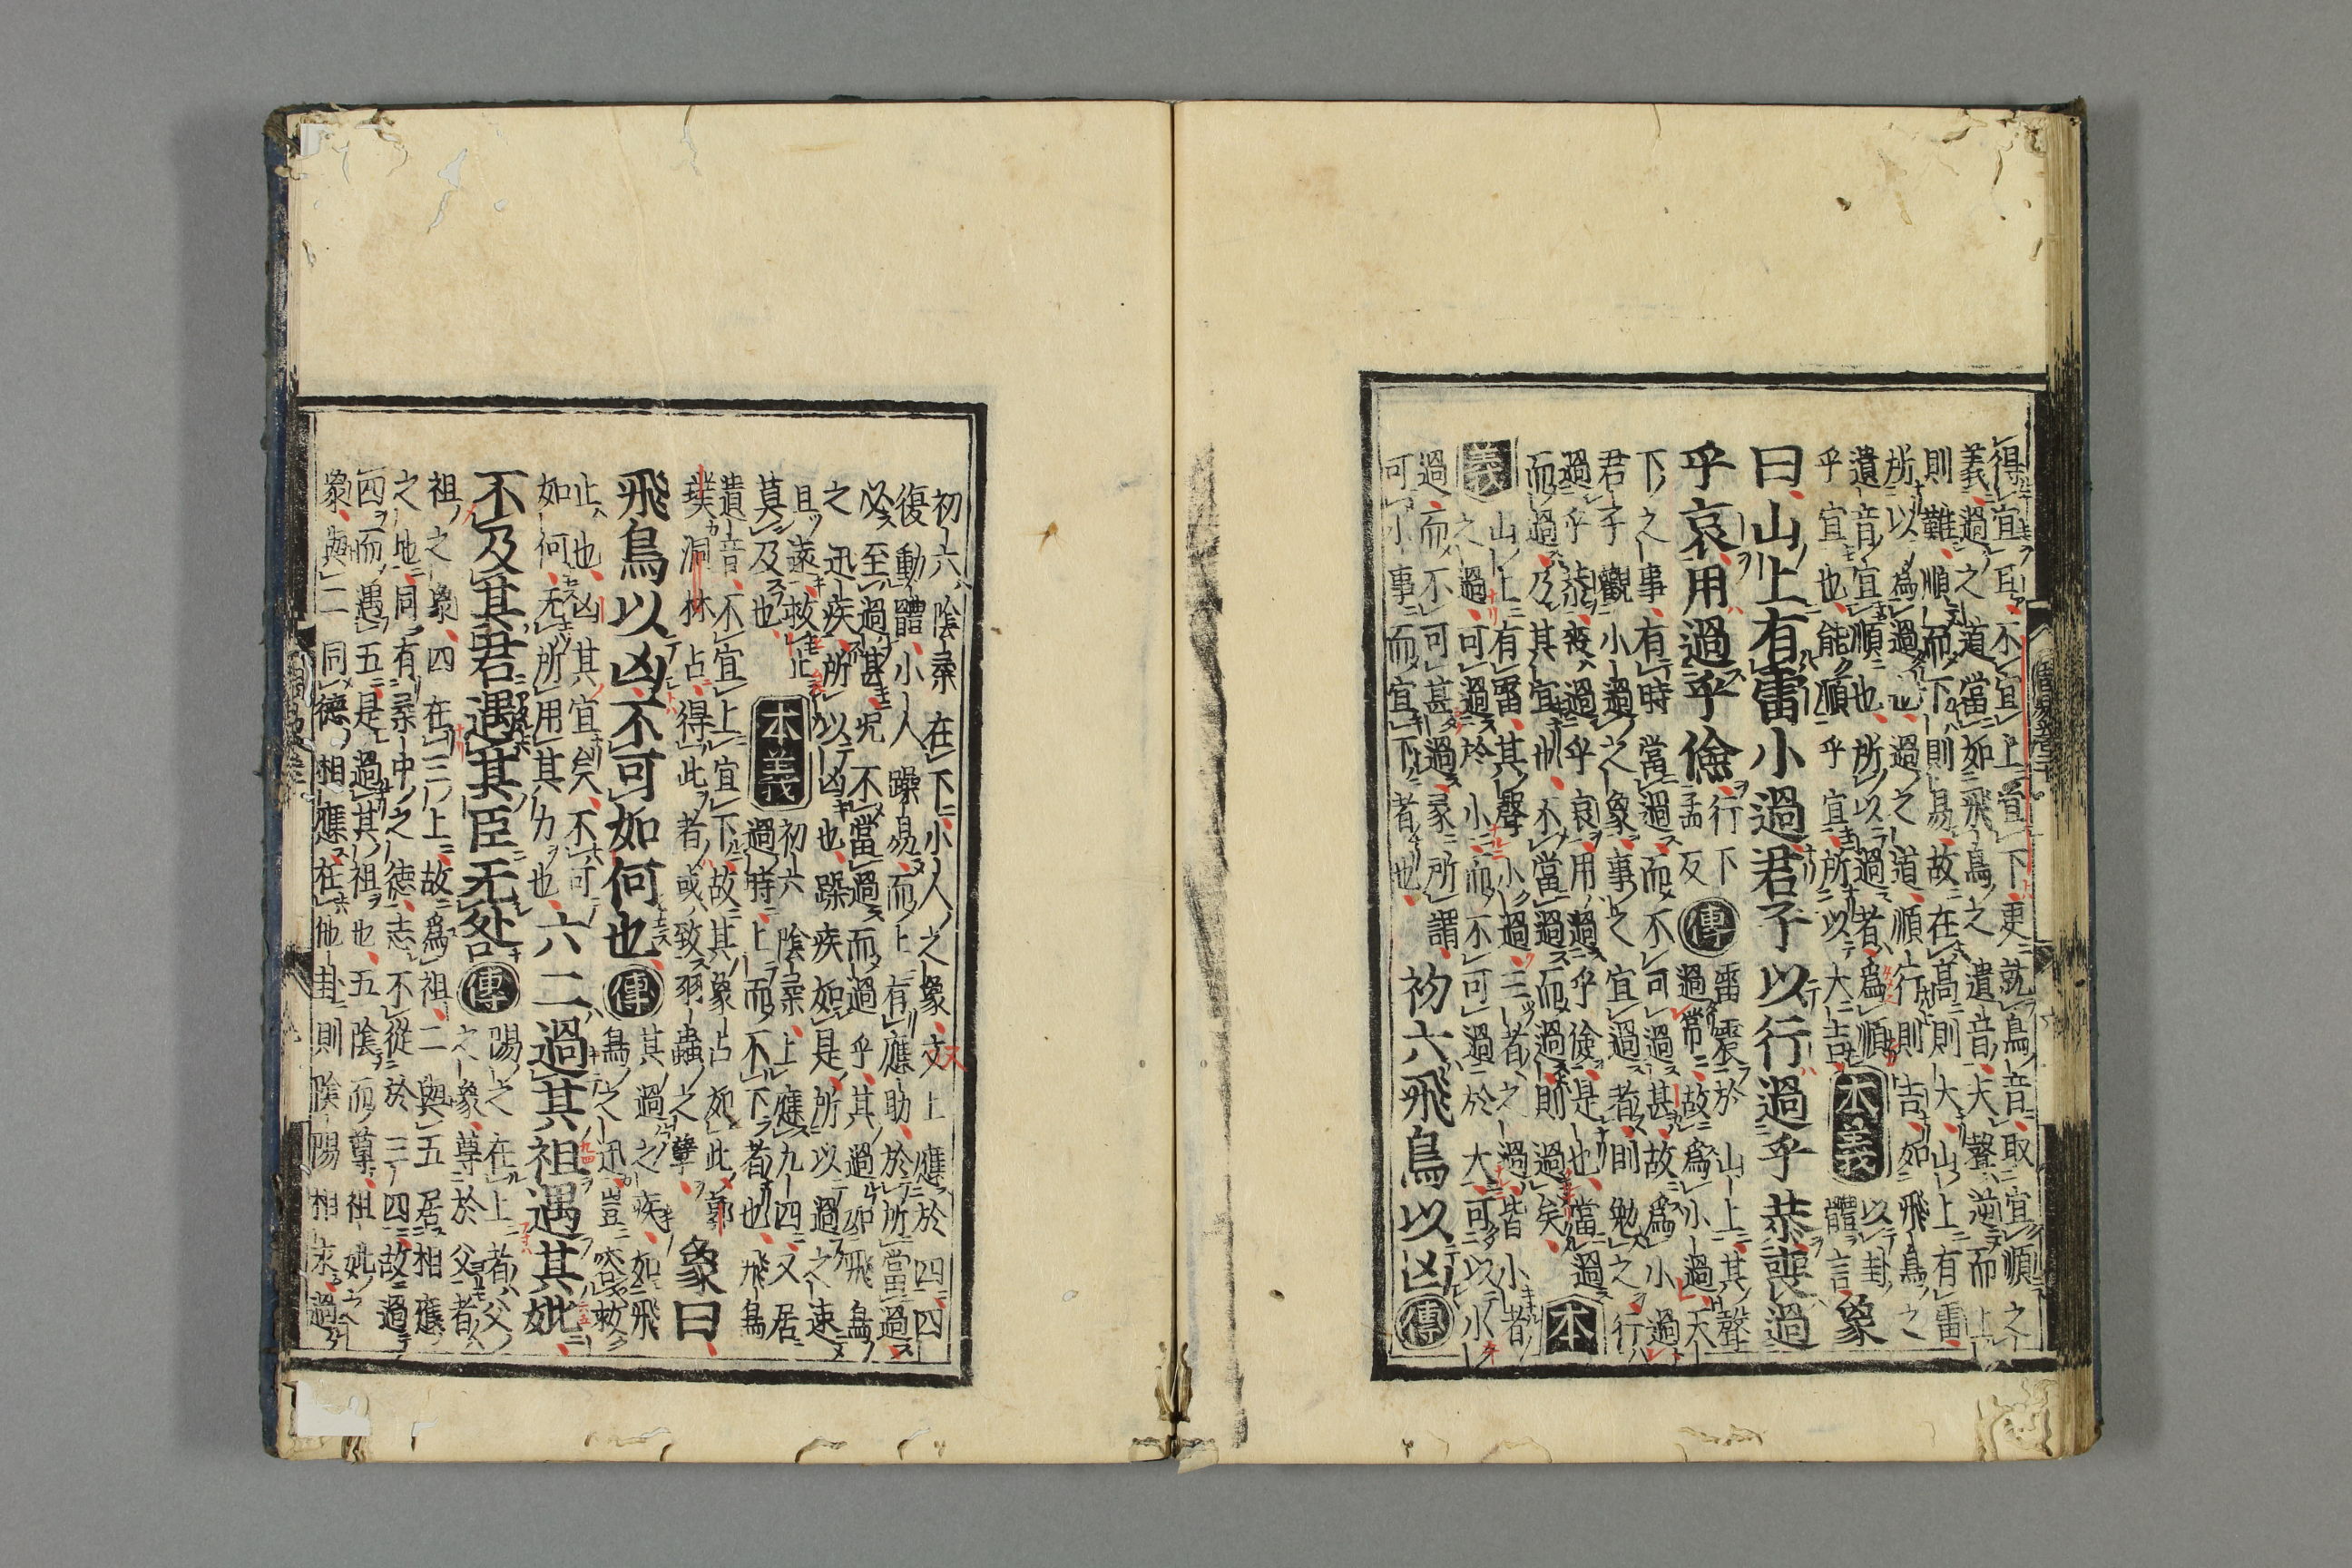 得宜耳不宜上宜下更就鳥音取宜順之
義過之道當如飛鳥之遺音夫聲逆而上
則難順而下則易故在高則大山上有雷
所以爲過也過之道順行則吉如飛鳥之
遺音宜順也所以過者爲順
乎宜也能順乎宜所以大吉
本義
以卦
體言
象
曰山上有雷小過君子以行過乎恭喪過
乎哀用過乎儉
行下
孟反
傳
雷震於山上其聲
過常故爲小過天
下之事有時當過而不可過甚故爲小過
君子觀小過之象事之宜過者則勉之行
過乎恭喪過乎哀用過乎儉是也當過
而過乃其宜也不當過而過則過矣
本
義
山上有雷其聲小過三者之過皆小者
之過可過於小而不可過於大可以小
過而不可甚過彖所謂
可小事而宜下者也
初六飛鳥以凶
傳
初六陰柔在下小人之象又上應於四四
復動體小人躁易而上有應助於所當過
必至過甚况不當過而過乎其過如飛鳥
之迅疾所以凶也躁疾如是所以過之速
且遠救止
莫及也
本義
初六陰柔上應九四又居
過時上而不下者也飛鳥
遺音不宜上宜下故其象占如此郭
璞洞林占得此者或致羽蟲之孽
象曰
飛鳥以凶不可如何也
傳
其過之疾如飛
鳥之迅豈容救
止也凶其宜矣不可
如何无所用其力也
六二過其祖遇其妣
不及其君遇其臣无咎
傳
陽之在上者父
之象尊於父者
祖之象四在三上故爲祖二與五居相應
之地同有柔中之德志不從於三四故過
四而遇五是過其祖也五陰而尊祖妣之
象與二同德相應在他卦則陰陽相求過